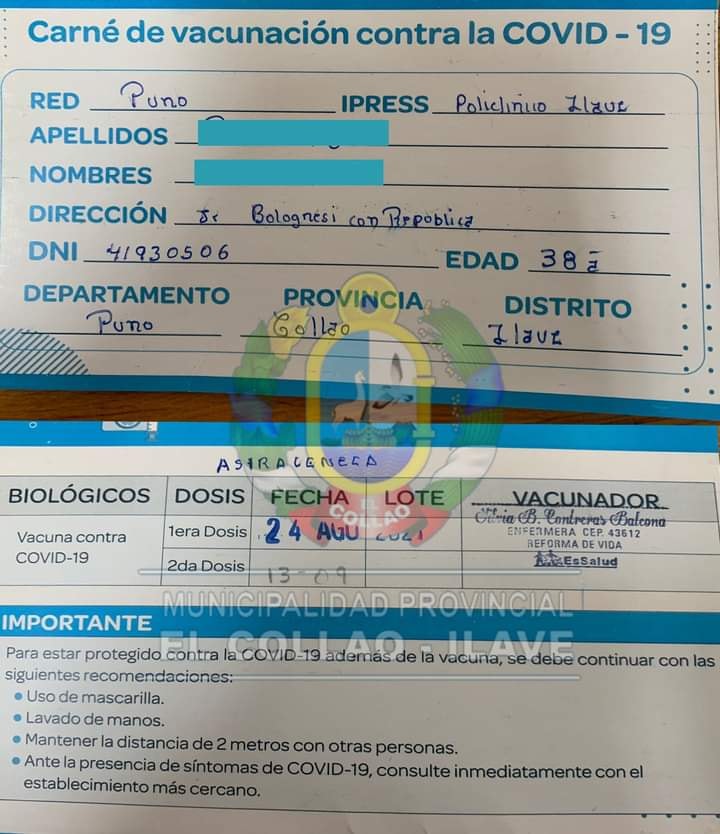 Carné de vacunación contra la COVID - 19
RED Puno IPRESS Policlinico Ilave
APELLIDOS
NOMBRES
DIRECCIÓN Jr Bolognesi con Republica
DNI 41930506 EDAD 38 a
DEPARTAMENTO PROVINCIA DISTRITO
Puno Collao Ilave
ASTRAZENECA
BIOLÓGICOS DOSIS FECHA LOTE VACUNADOR
Vacuna contra COVID-19
1era Dosis 24 AGO 2021
2da Dosis 13-09
Silvia B. Contreras Balcona
ENFERMERA CEP. 43612
REFORMA DE VIDA
EsSalud
EL COLLAO
MUNICIPALIDAD PROVINCIAL
EL COLLAO - ILAVE
IMPORTANTE
Para estar protegido contra la COVID-19 además de la vacuna, se debe continuar con las
siguientes recomendaciones:
• Uso de mascarilla.
• Lavado de manos.
• Mantener la distancia de 2 metros con otras personas.
• Ante la presencia de síntomas de COVID-19, consulte inmediatamente con el
establecimiento más cercano.